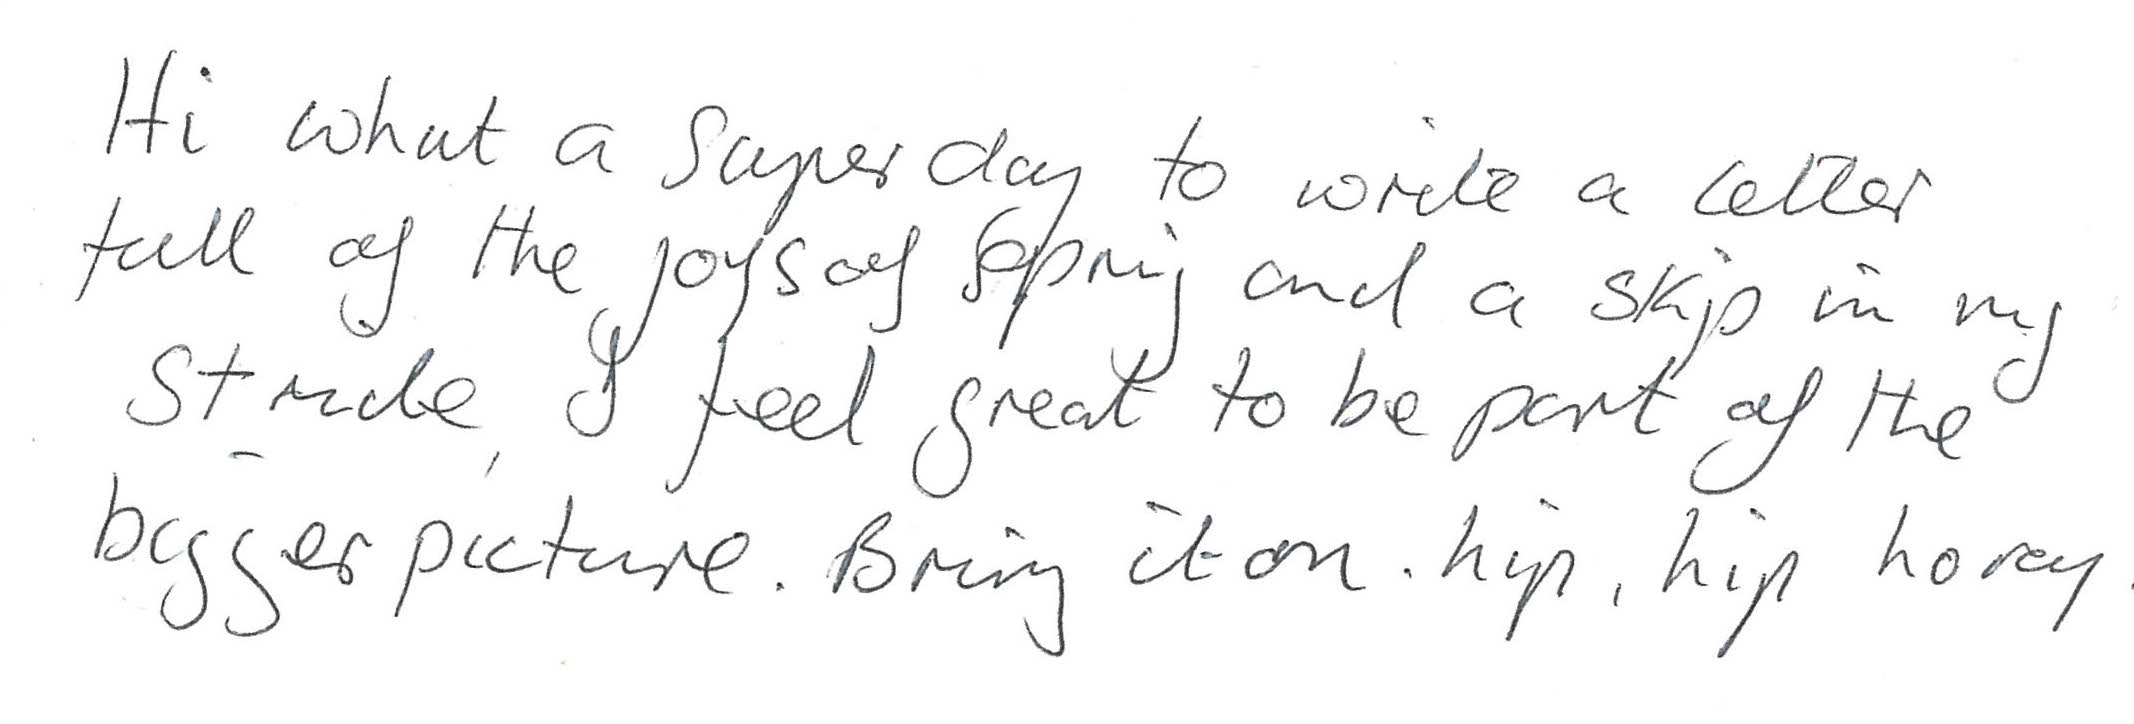 Hi what a Super day to write a letter
full of the joys of Spring and a skip in my
Stride, I feel great to be part of the
bigger picture. Bring it on. hip, hip horay.